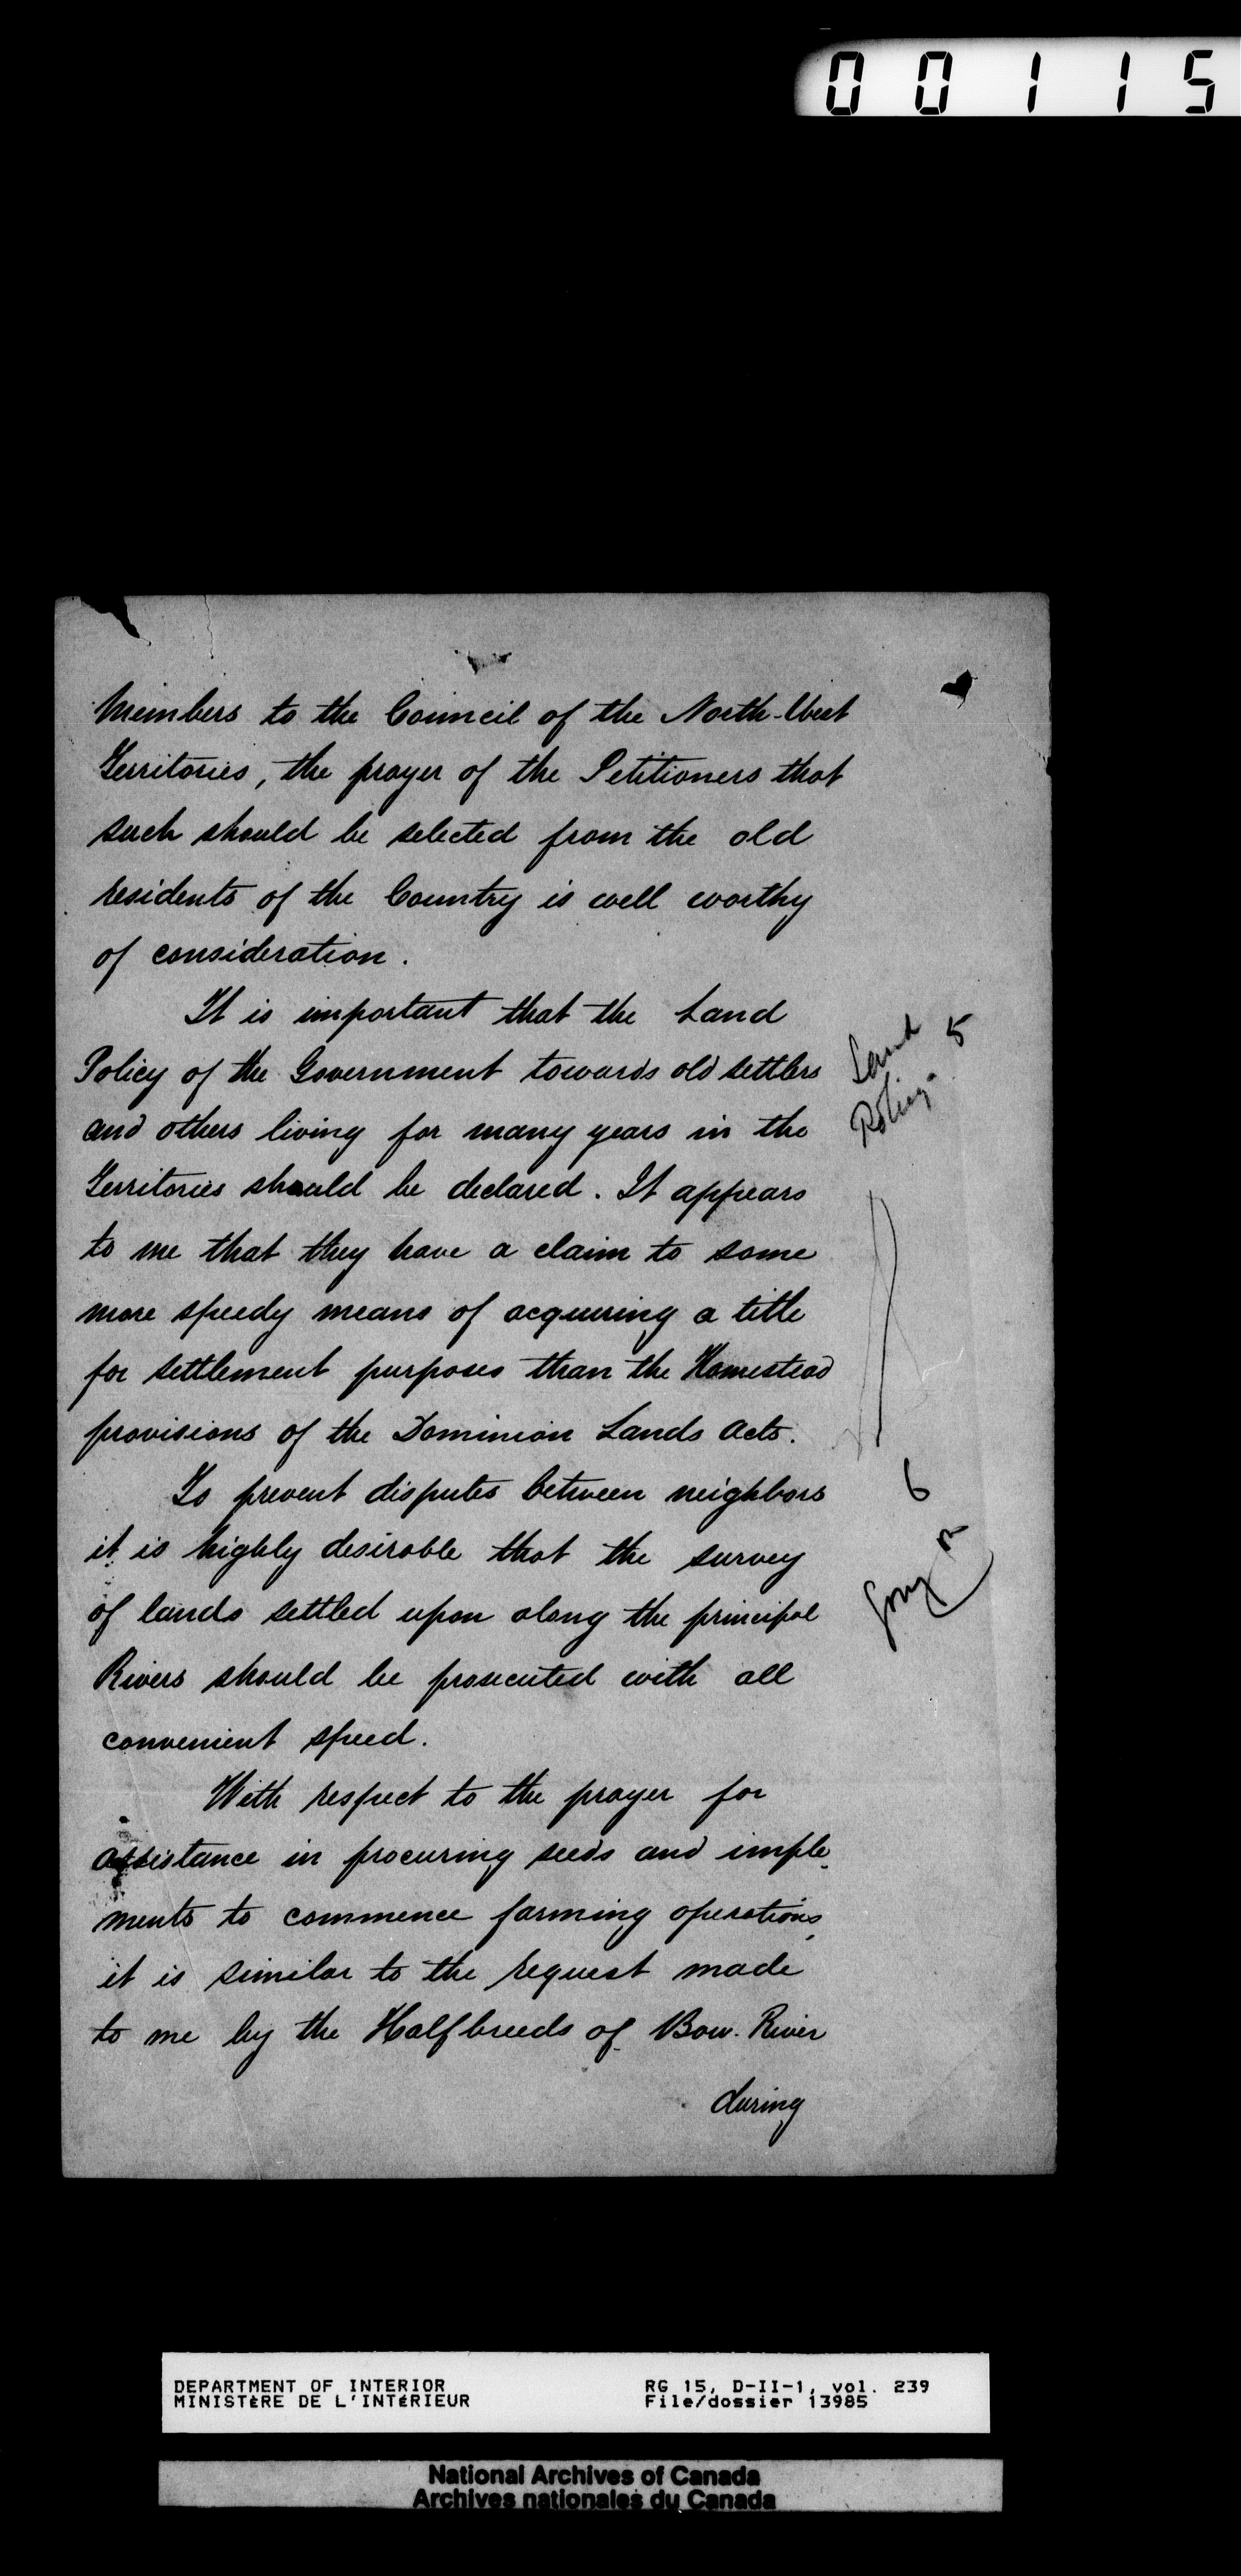 00115
Members to the Council of the North-West
Territories, the prayer of the Petitioners that
such should be selected from the old
residents of the Country is well worthy
of consideration.
It is important that the Land
Policy of the Government towards old settlers
and others living for many years in the
Territories should be declared. It appears
to me that they have a claim to some
more speedy means of acquiring a title
for settlement purposes than the Homestead
provisions of the Dominion Lands Acts.
To prevent disputes between neighbors
it is highly desirable that the survey
of lands settled upon along the principal
Rivers should be prosecuted with all
convenient speed.
With respect to the prayer for
assistance in procuring seeds and imple-
ments to commence farming operations,
it is similar to the request made
to me by the Halfbreeds of Bow River
during
Land 5
Policy.
6
DEPARTMENT OF INTERIOR
MINISTÈRE DE L'INTÉRIEUR
RG 15, D-II-1, vol. 239
File/dossier 13985
National Archives of Canada
Archives nationales du Canada